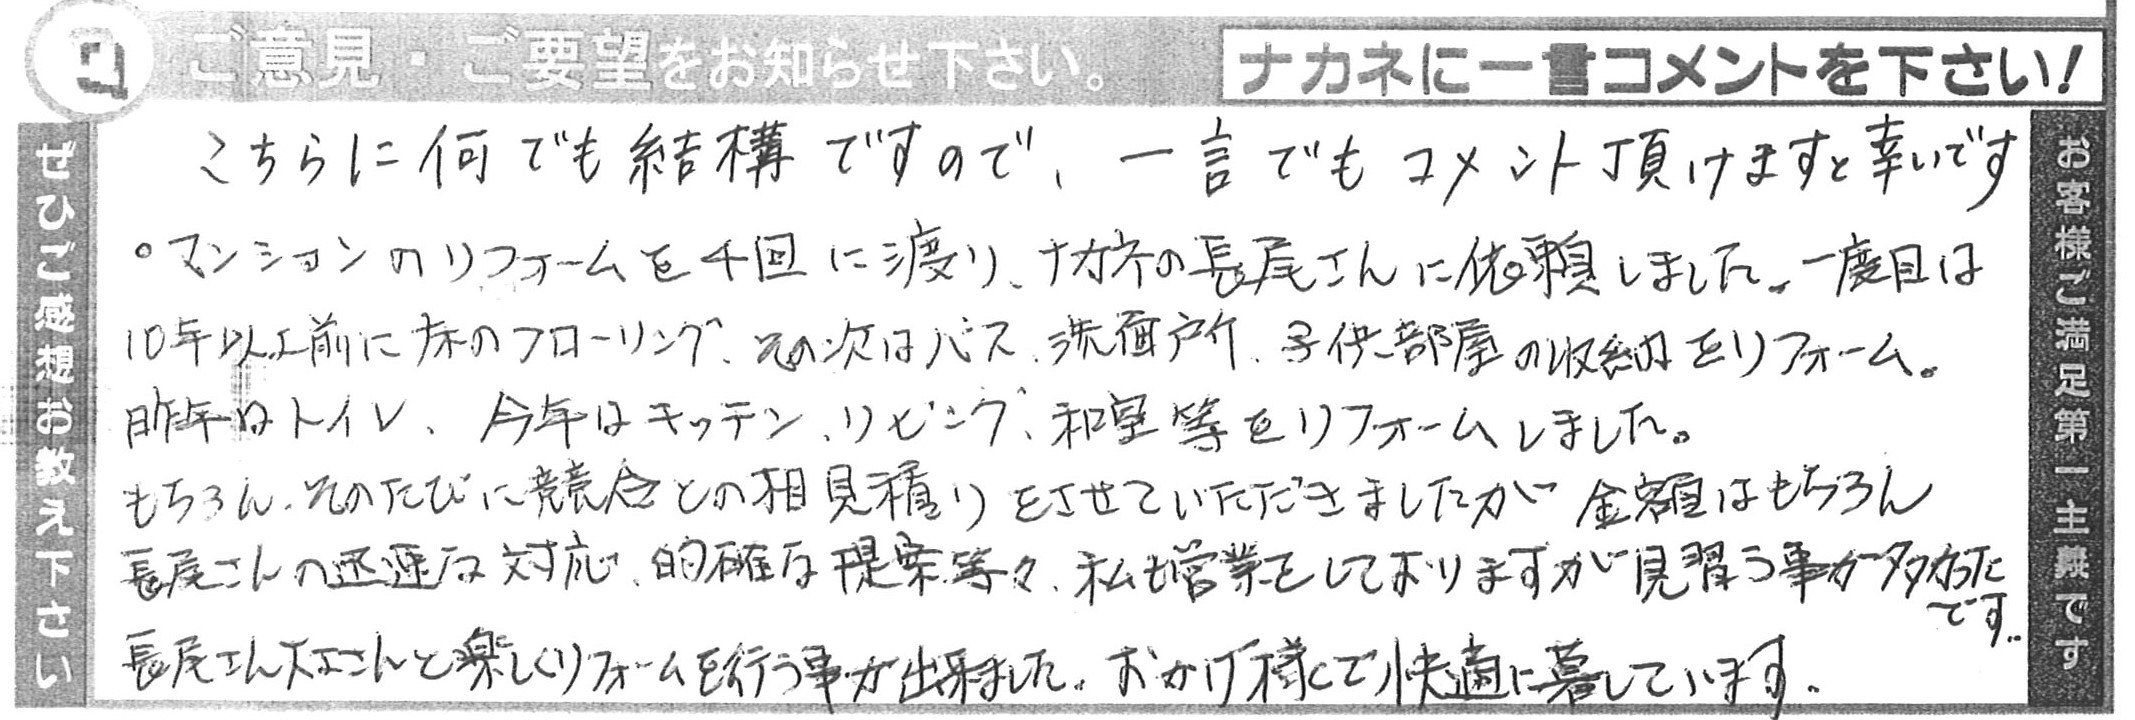 ご意見・ご要望をお知らせ下さい。
ナカネに一言コメントを下さい!
ぜひご感想お教え下さい
お客様ご満足第一主義です
こちらに何でも結構ですので、一言でもコメント頂けますと幸いです
。マンションのリフォームを4回に渡り、ナカネの長尾さんに依頼しました。一度目は
10年以上前に床のフローリング、その次はバス、洗面所、子供部屋の収納をリフォーム。
昨年はトイレ、今年はキッチン、リビング、和室等をリフォームしました。
もちろん、そのたびに競合との相見積りをさせていただきましたが金額はもちろん
長尾さんの迅速な対応、的確な提案等々、私も営業をしておりますが見習う事が多かった
です。
長尾さん大工さんと楽しくリフォームを行う事が出来ました。おかげ様で快適に暮しています。